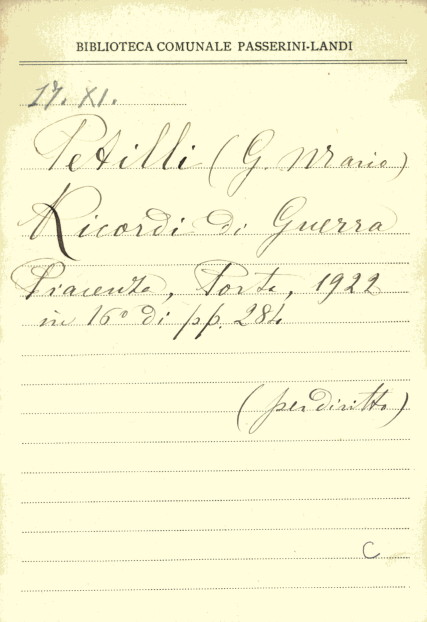 BIBLIOTECA COMUNALE PASSERINI-LANDI
17. XI.
Petilli (G. Mario)
Ricordi di Guerra
Piacenza, Porta, 1922
in 16° di pp. 284
(per diritto)
C